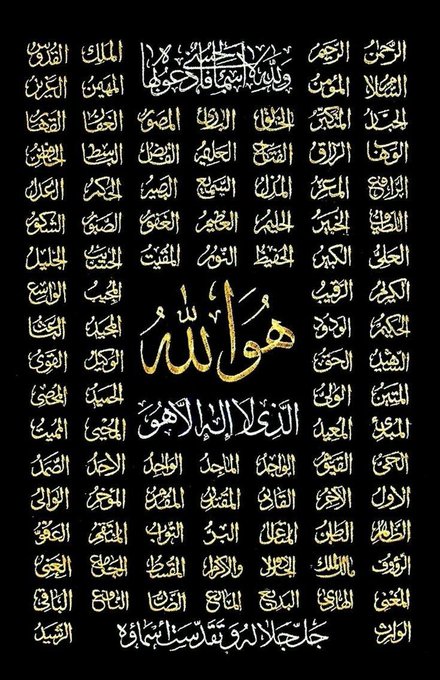 الرحمن الرحيم ولله الأسماء الحسنى فادعوه بها الملك القدوس
السلام المؤمن المهيمن العزيز
الجبار المتكبر الخالق البارئ المصور الغفار القهار
الوهاب الرزاق الفتاح العليم القابض الباسط الخافض
الرافع المعز المذل السميع البصير الحكم العدل
اللطيف الخبير الحليم العظيم الغفور الصبور الشكور
العلي الكبير الحفيظ النور المقيت الحسيب الجليل
الكريم الرقيب المجيب الواسع
الحكيم الودود المجيد الباعث
هُوَ اللهُ
الشهيد الحق الوكيل القوي
المتين الولي الحميد المحصي
الَّذِي لَا إِلٰهَ إِلَّا هُوَ
المبدئ المعيد المحيي المميت
الحي القيوم الواجد الماجد الواحد الاحد الصمد
الاول الآخر القادر المقتدر المقدم المؤخر الوالي
الظاهر الباطن المتعال البر التواب المنتقم العفو
الرؤوف مالك الملك ذو الجلال والاكرام المقسط الجامع الغني
المغني الهادي البديع المانع الضار النافع الباقي
الوارث جَلَّ جَلَالُهُ وَتَقَدَّسَتْ أَسْمَاؤُهُ الرشيد